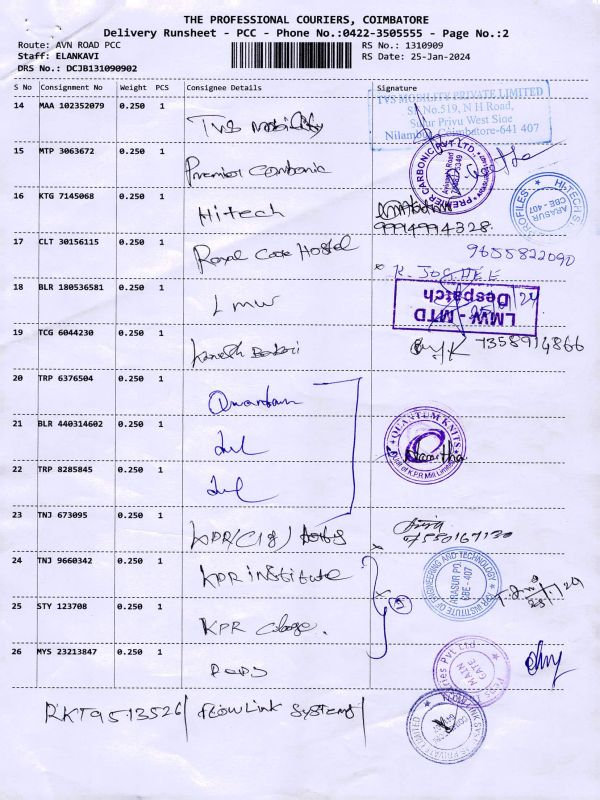 THE PROFESSIONAL COURIERS, COIMBATORE
Delivery Runsheet - PCC - Phone No.:0422-3505555 - Page No.:2
Route: AVN ROAD PCC
RS No.: 1310909
Staff: ELANKAVI
RS Date: 25-Jan-2024
DRS No.: DCJB131090902
S No Consignment No Weight PCS Consignee Details Signature
14 MAA 102352079 0.250 1 TVS Mobility
TVS MOBILITY PRIVATE LIMITED
SF No.519, N H Road,
Sulur Privu West Side
Nilambur, Coimbatore-641 407
15 MTP 3063672 0.250 1 Premier Carbonic
PREMIER CARBONIC PVT LTD
16 KTG 7145068 0.250 1 Hitech
99949 94328
HI-TECH PROFILES
ARASUR
CBE - 407
17 CLT 30156115 0.250 1 Royal Care Hostel
9655822090
18 BLR 180536581 0.250 1 LMW
LMW - MTD
Despatch
19 TCG 6044230 0.250 1
7358914866
20 TRP 6376504 0.250 1 Quantum
21 BLR 440314602 0.250 1
QUANTUM KNITS
Unit of K.P.R Mill Limited
22 TRP 8285845 0.250 1
23 TNJ 673095 0.250 1 KPR
24 TNJ 9660342 0.250 1 KPR institute
KPR INSTITUTE OF ENGINEERING AND TECHNOLOGY
ARASUR PO.
CBE - 407
25 STY 123708 0.250 1 KPR College.
26 MYS 23213847 0.250 1 Peps
MAIN
GATE
RKT9513526 / FLOWLink Systems